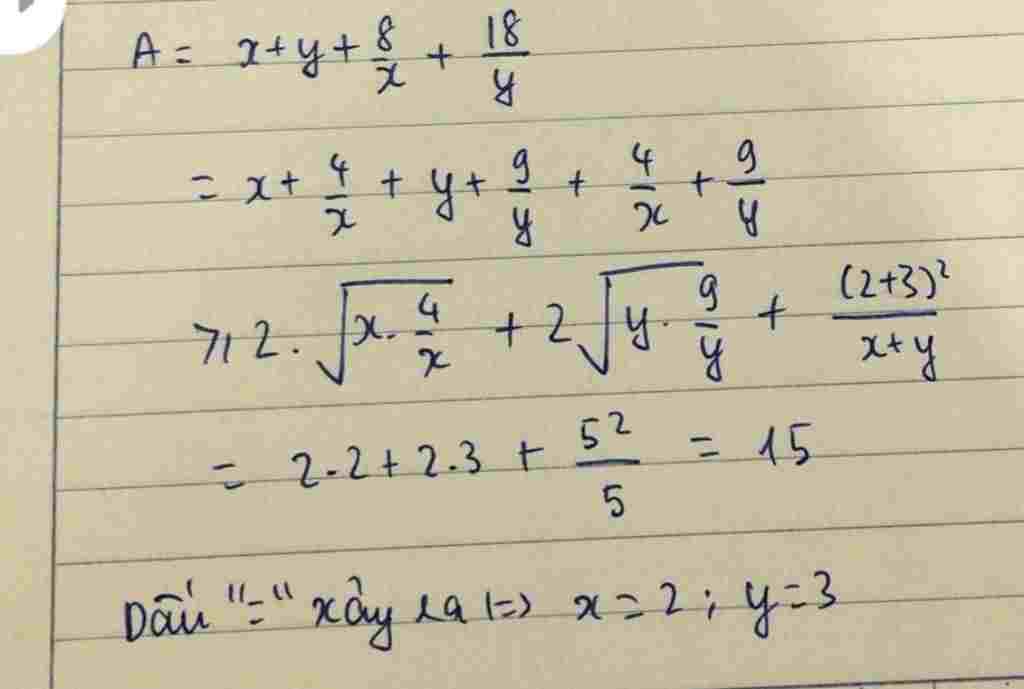 A = x + y + 8/x + 18/y
= x + 4/x + y + 9/y + 4/x + 9/y
≥ 2 . √(x . 4/x) + 2√(y . 9/y) + (2+3)²/(x+y)
= 2.2 + 2.3 + 5²/5 = 15
Dấu "=" xảy ra (=) x = 2 ; y = 3